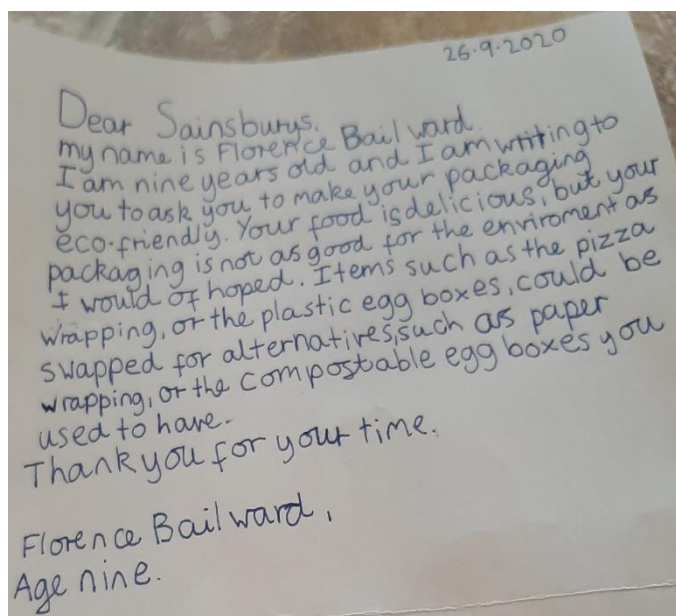 26.9.2020
Dear Sainsburys.
my name is Florence Bailward.
I am nine years old and I am writing to
you to ask you to make your packaging
eco-friendly. Your food is delicious, but your
packaging is not as good for the enviroment as
I would of hoped. Items such as the pizza
wrapping, or the plastic egg boxes, could be
swapped for alternatives, such as paper
wrapping, or the compostable egg boxes you
used to have.
Thank you for your time.
Florence Bailward,
Age nine.